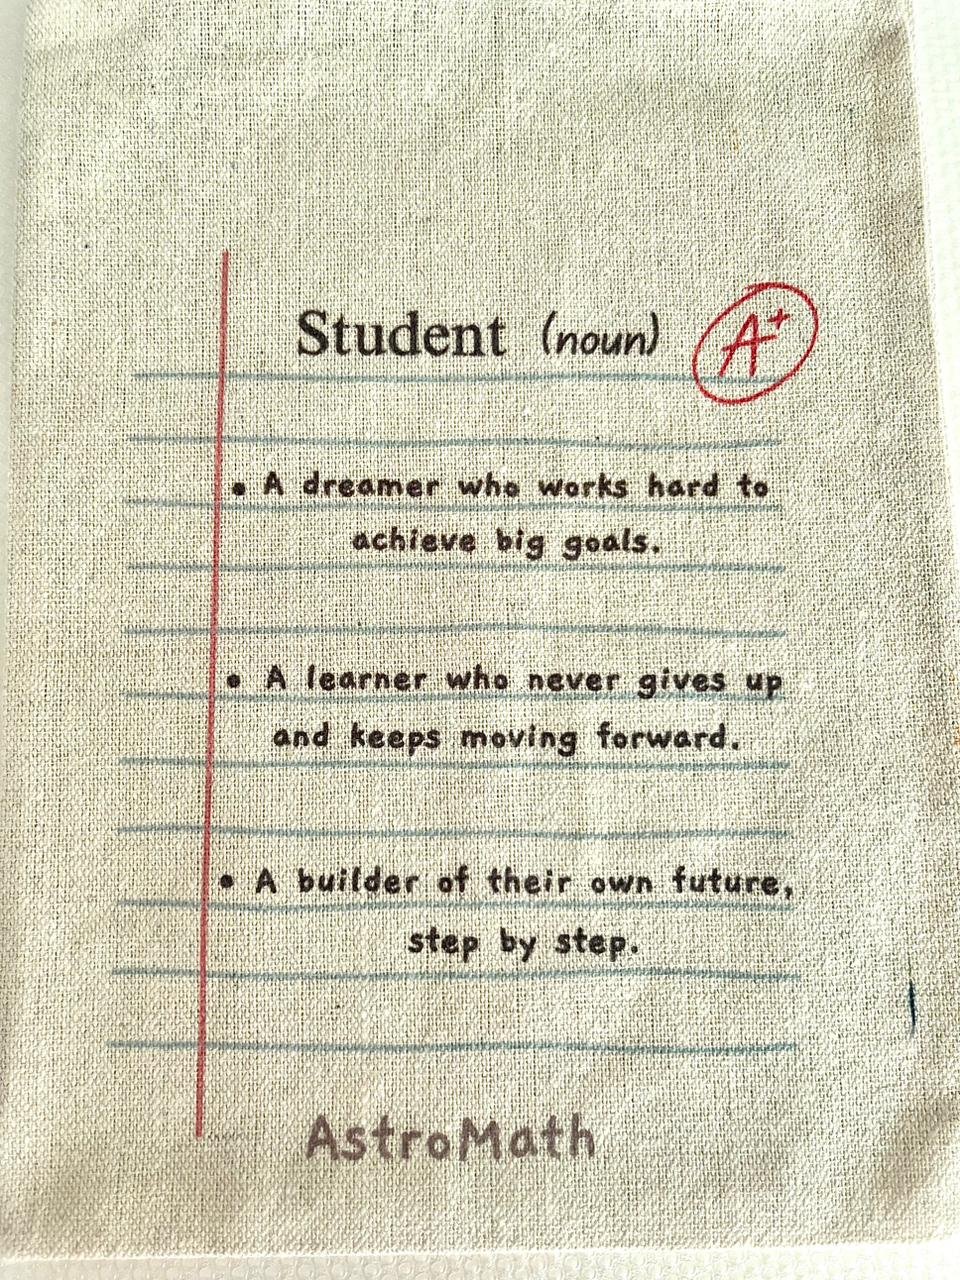 Student (noun) A+
• A dreamer who works hard to
achieve big goals.
• A learner who never gives up
and keeps moving forward.
• A builder of their own future,
step by step.
AstroMath